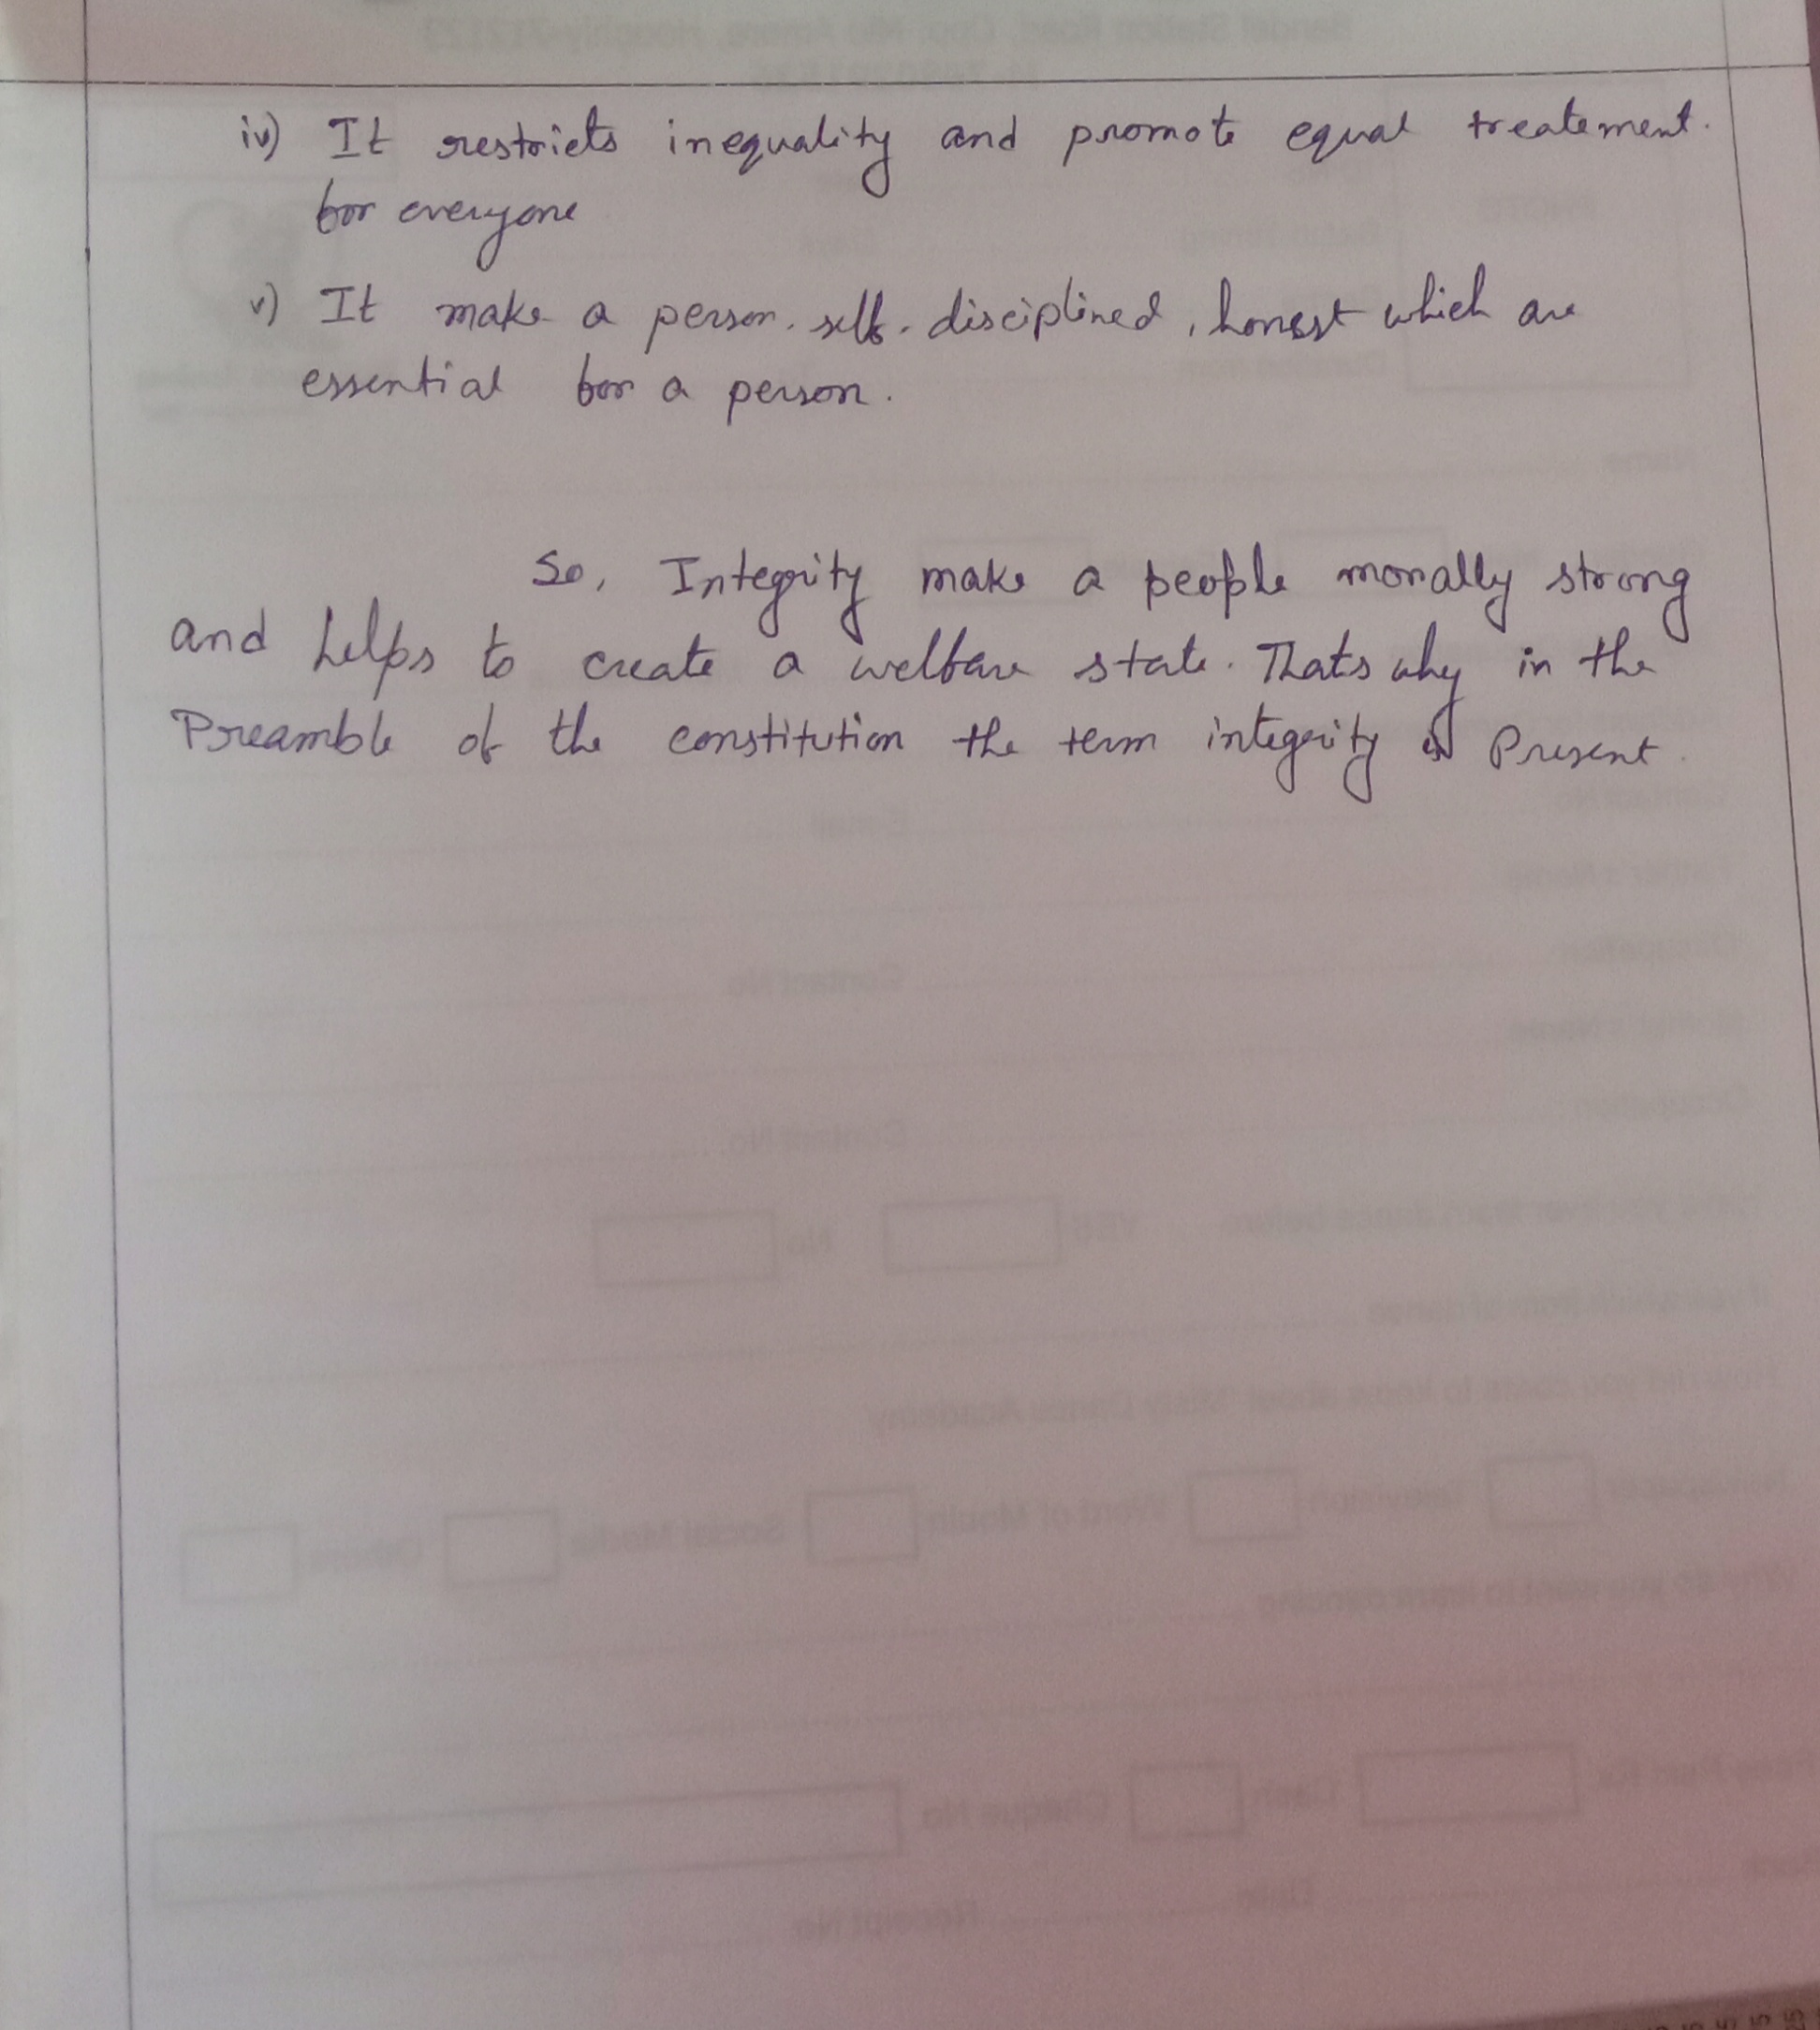 iv) It restricts inequality and promote equal treatement.
for everyone
v) It make a person self-disciplined, honest which are
essential for a person.
So, Integrity make a people morally strong
and helps to create a welfare state. Thats why in the
Preamble of the constitution the term integrity is Present.